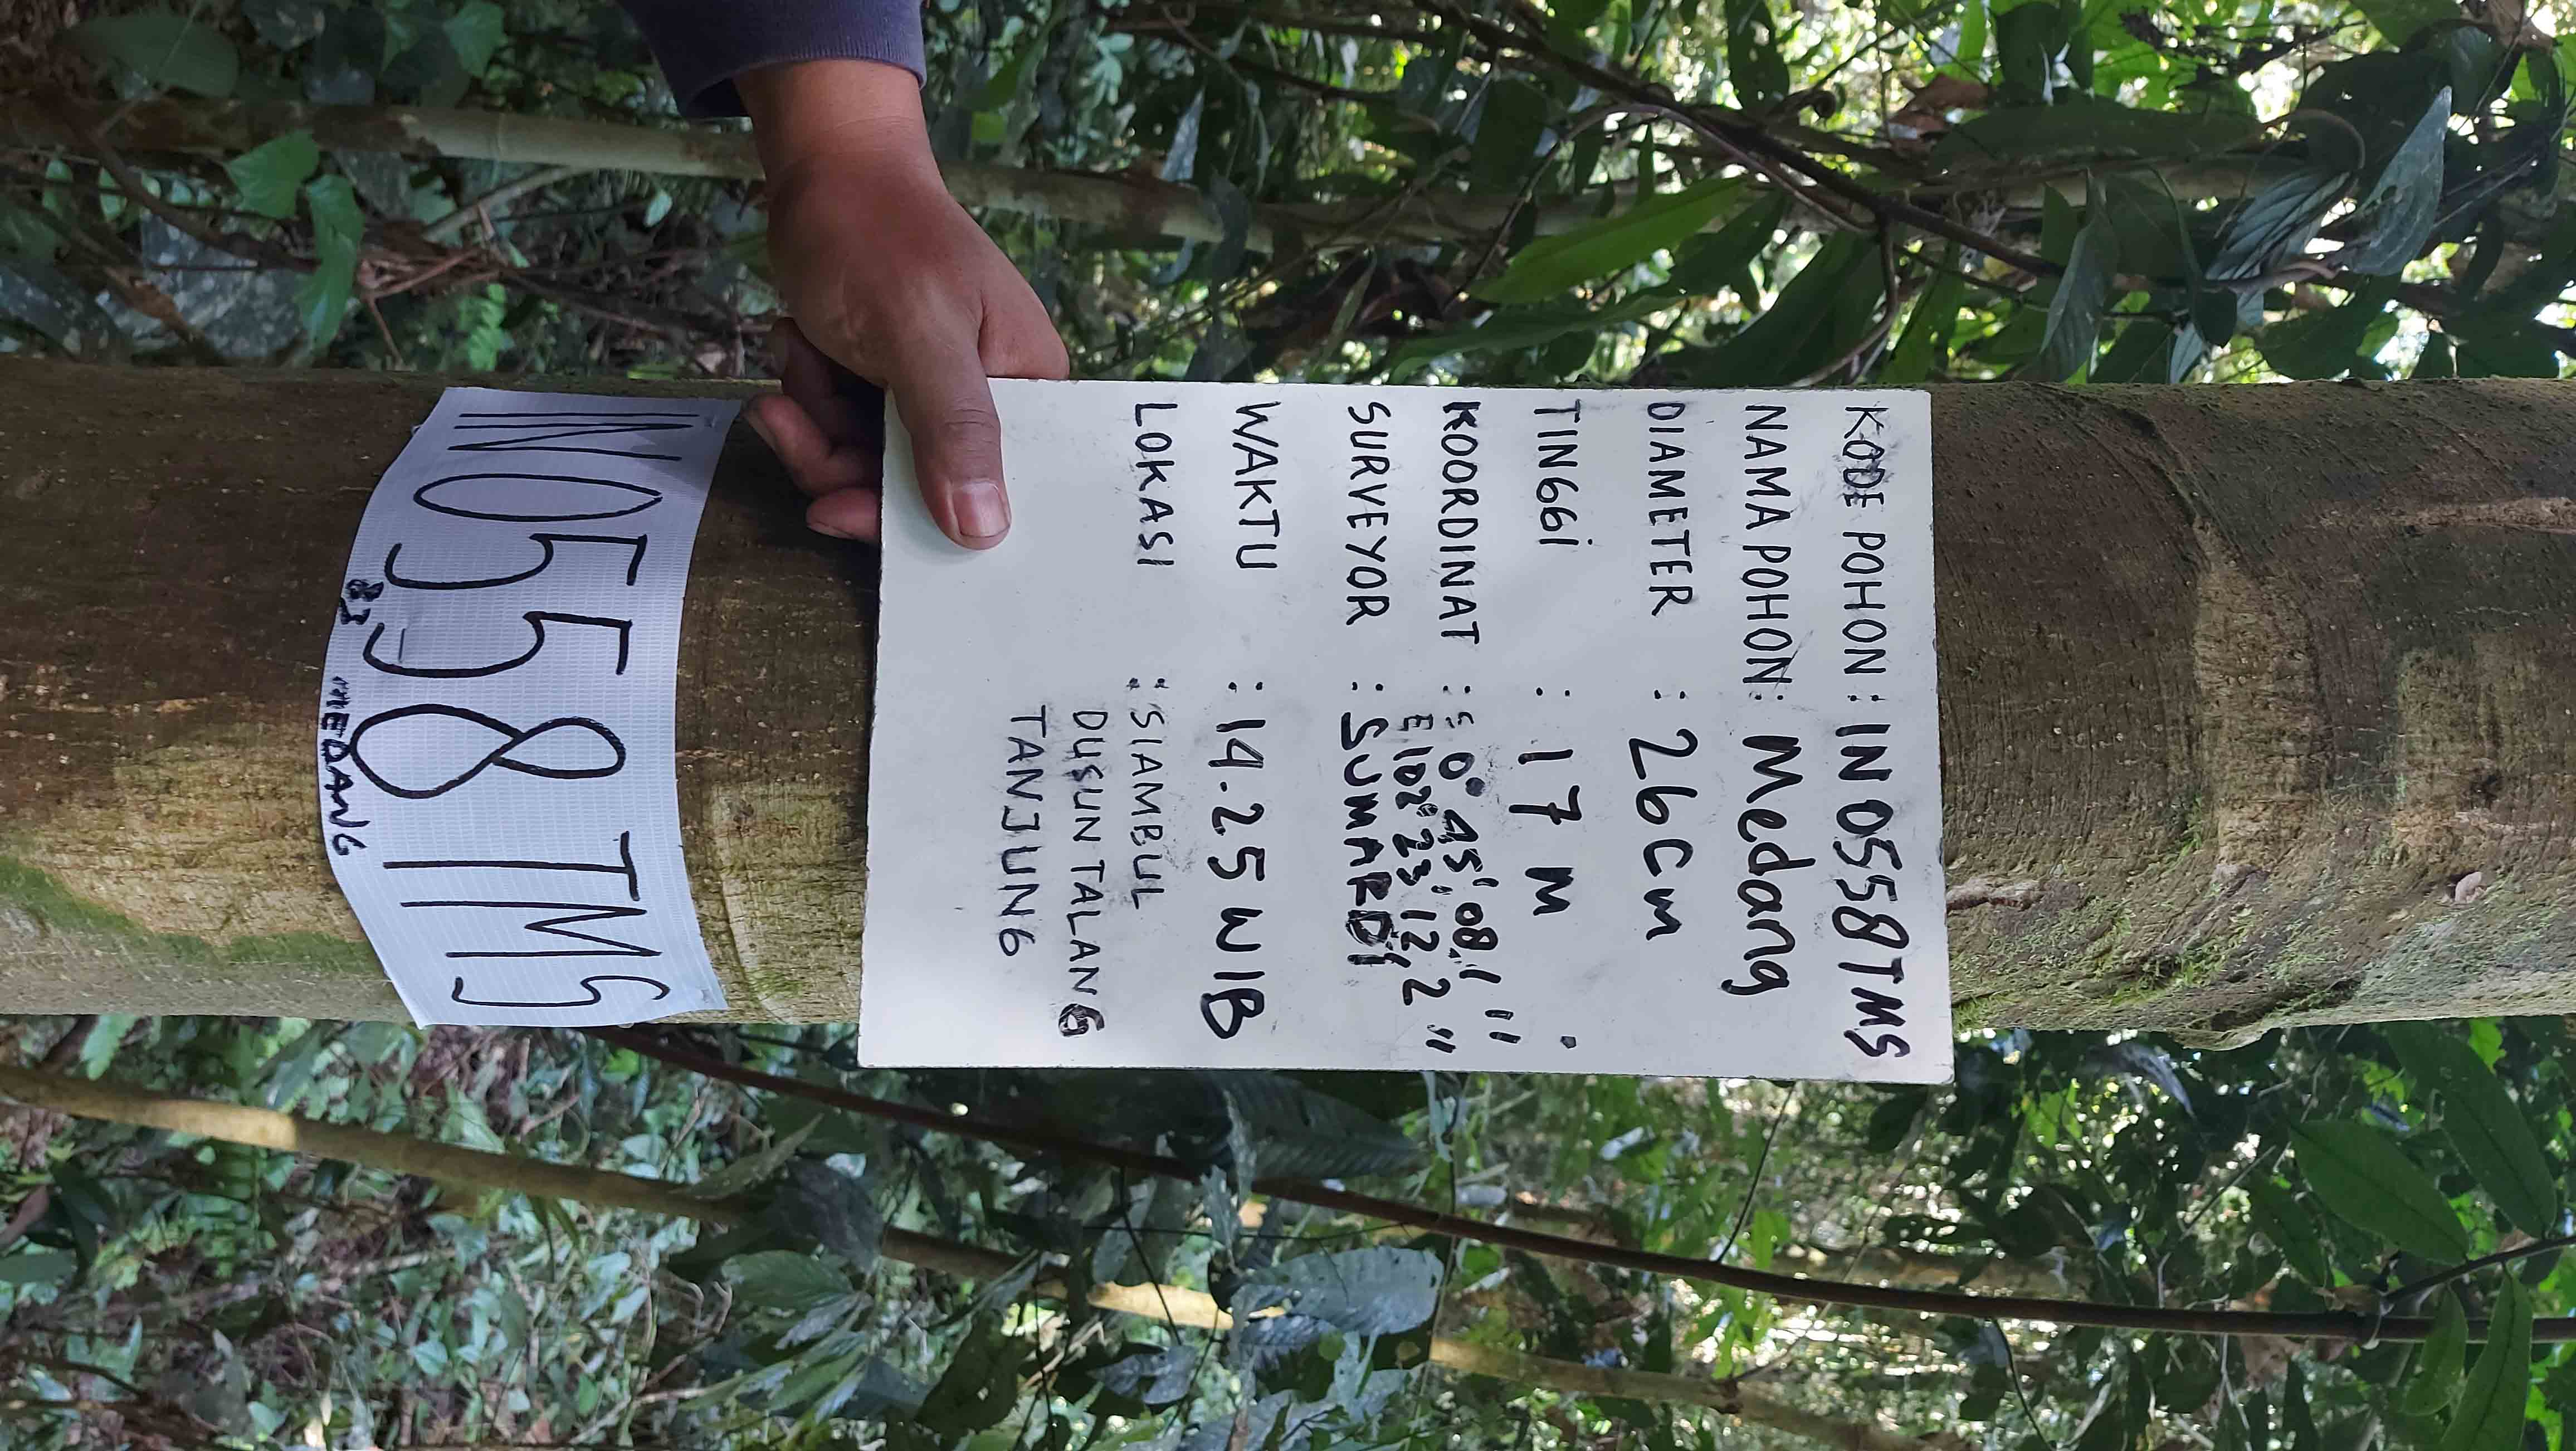 KODE POHON : IN0558TMS
NAMA POHON : Medang
DIAMETER : 26Cm
TINGGi : 17 M
KOORDINAT : S 0° 45' 08,1"
E 102° 23' 12,2"
SURVEYOR : SUMARDi
WAKTU : 14.25 WIB
LOKASI : SIAMBUL
DUSUN TALANG
TANJUNG
IN0558TMS
83 MEDANG